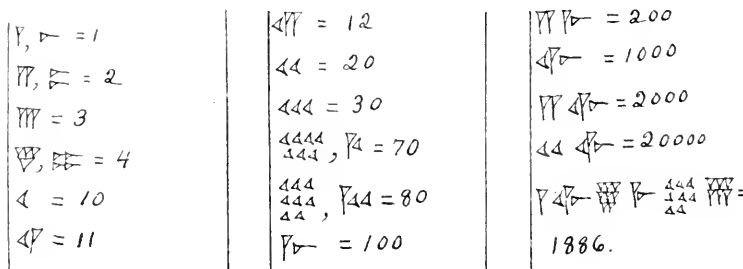 𒁹, 𒀸 = 1
𒈫, 𒐀 = 2
𒐈 = 3
𒐉, 𒐂 = 4
𒌋 = 10
𒌋𒁹 = 11
𒌋𒈫 = 12
𒌋𒌋 = 20
𒌋𒌋𒌋 = 30
𒌋𒌋𒌋𒌋𒌋𒌋𒌋, 𒁹𒌋 = 70
𒌋𒌋𒌋𒌋𒌋𒌋𒌋𒌋, 𒁹𒌋𒌋 = 80
𒁹𒀸 = 100
𒈫 𒁹𒀸 = 200
𒌋𒁹𒀸 = 1000
𒈫 𒌋𒁹𒀸 = 2000
𒌋𒌋 𒌋𒁹𒀸 = 20000
𒁹 𒌋𒁹𒀸 𒐍 𒁹𒀸 𒌋𒌋𒌋𒌋𒌋𒌋𒌋𒌋 𒐋 =
1886.